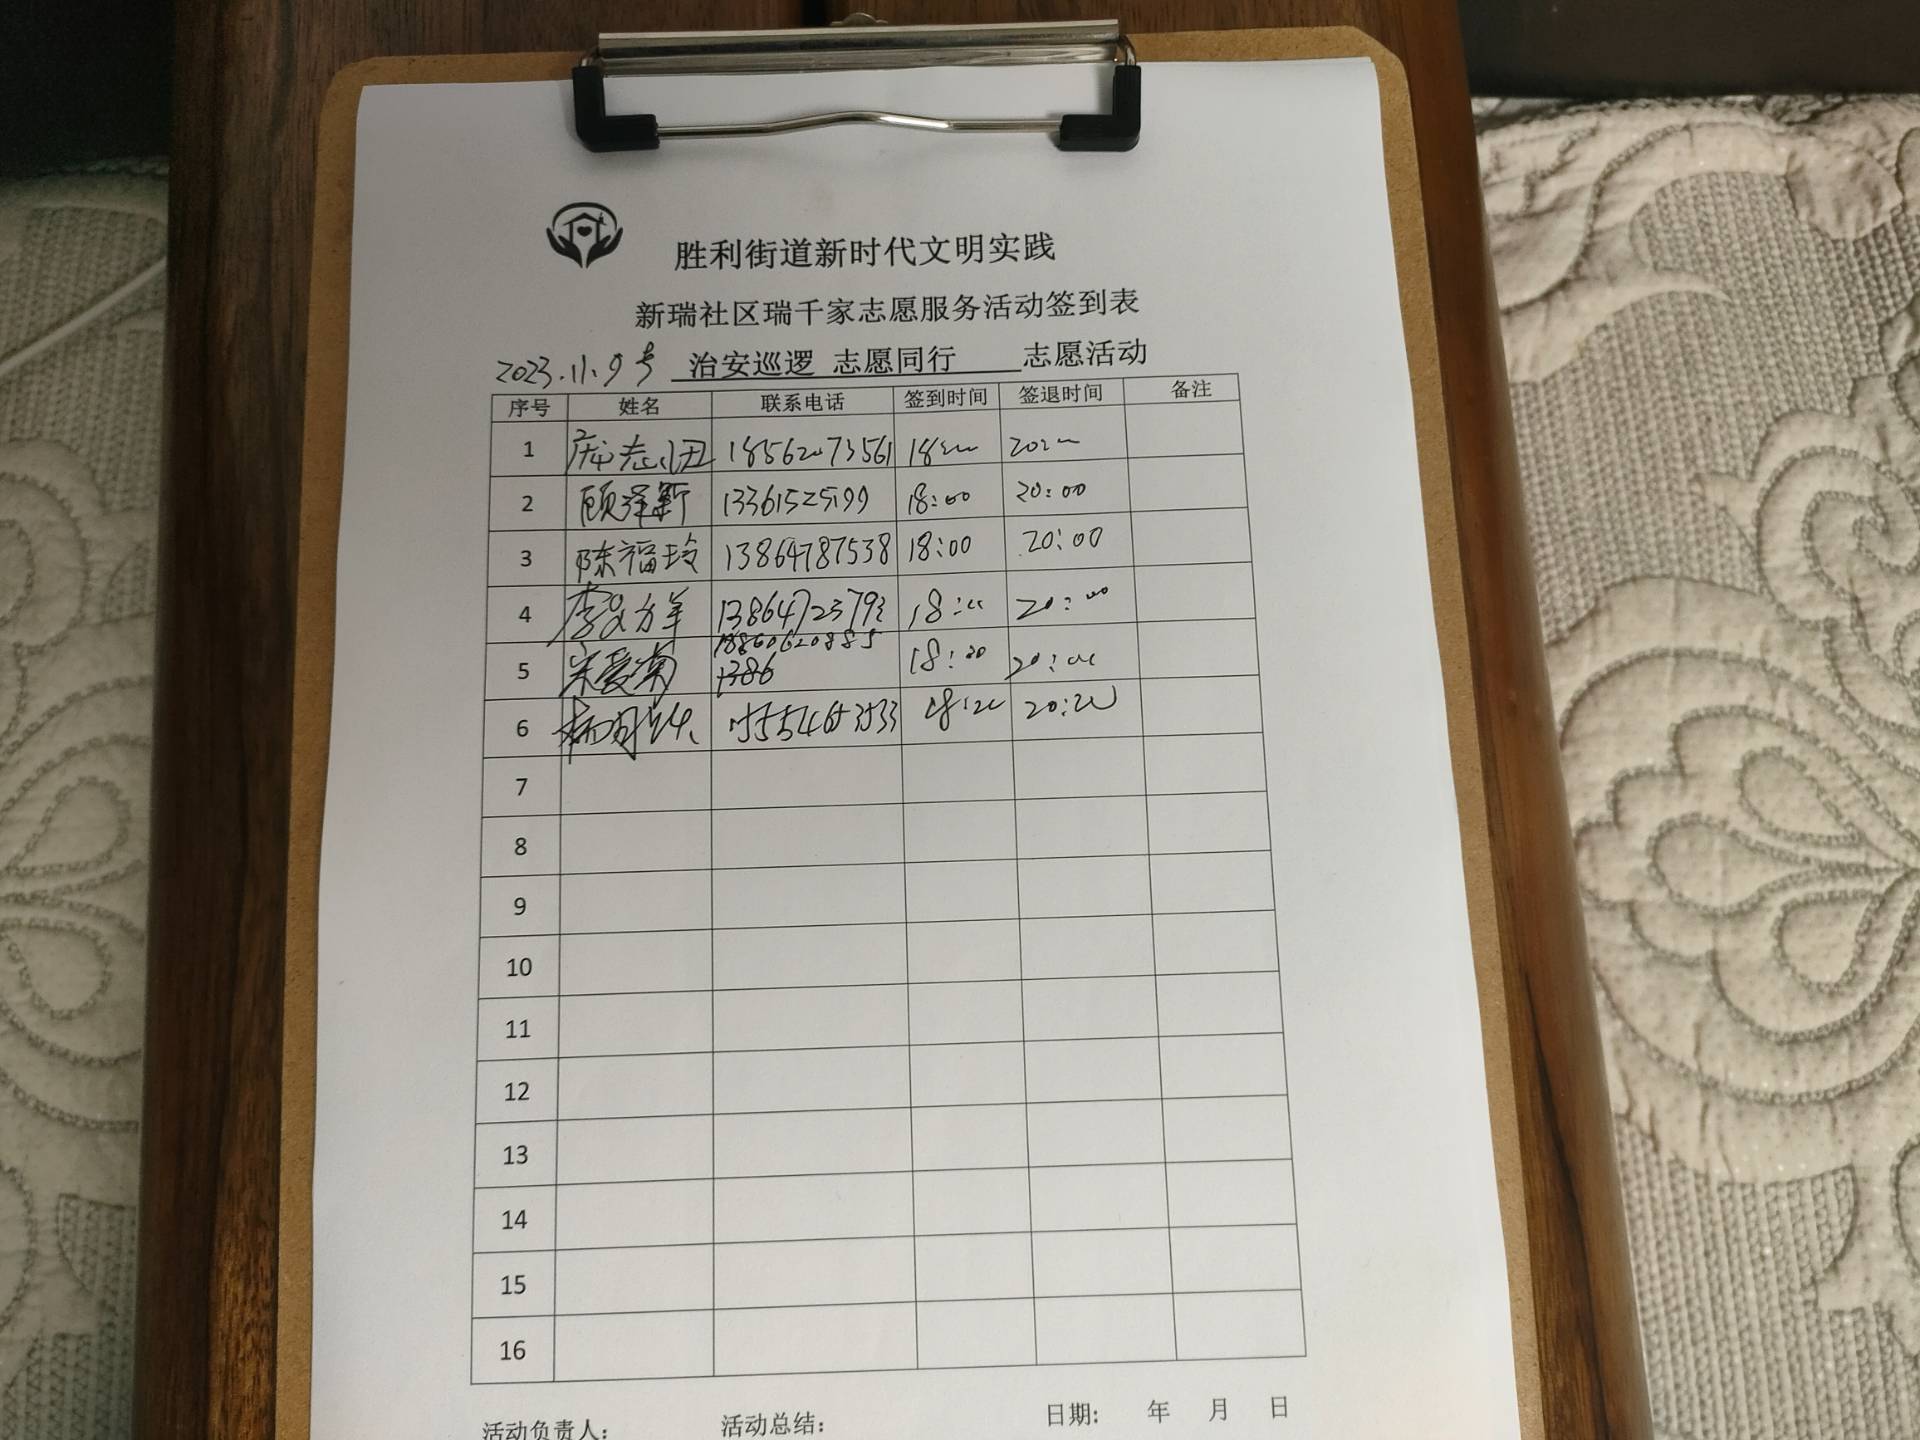 胜利街道新时代文明实践
新瑞社区瑞千家志愿服务活动签到表
2023.11.9号 治安巡逻 志愿同行 志愿活动
序号 姓名 联系电话 签到时间 签退时间 备注
1 18562073561
2 顾泽新 13361525199 18:00 20:00
3 陈福玲 13864787538 18:00 20:00
4 18:00 20:00
5 宋爱菊 18:00 20:00
6 18:00 20:00
7
8
9
10
11
12
13
14
15
16
活动负责人: 活动总结: 日期: 年 月 日